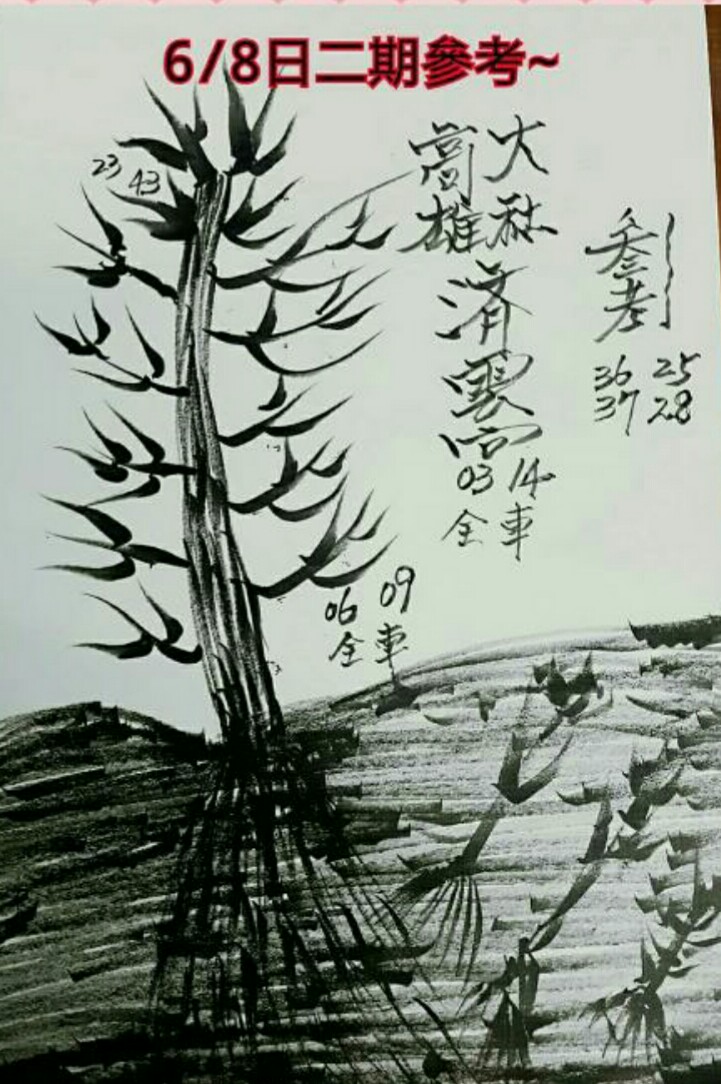 6/8日二期參考~
高雄
大社
濟雲宮
03 14
全車
參考
36 25
37 28
23 43
06 09
全車